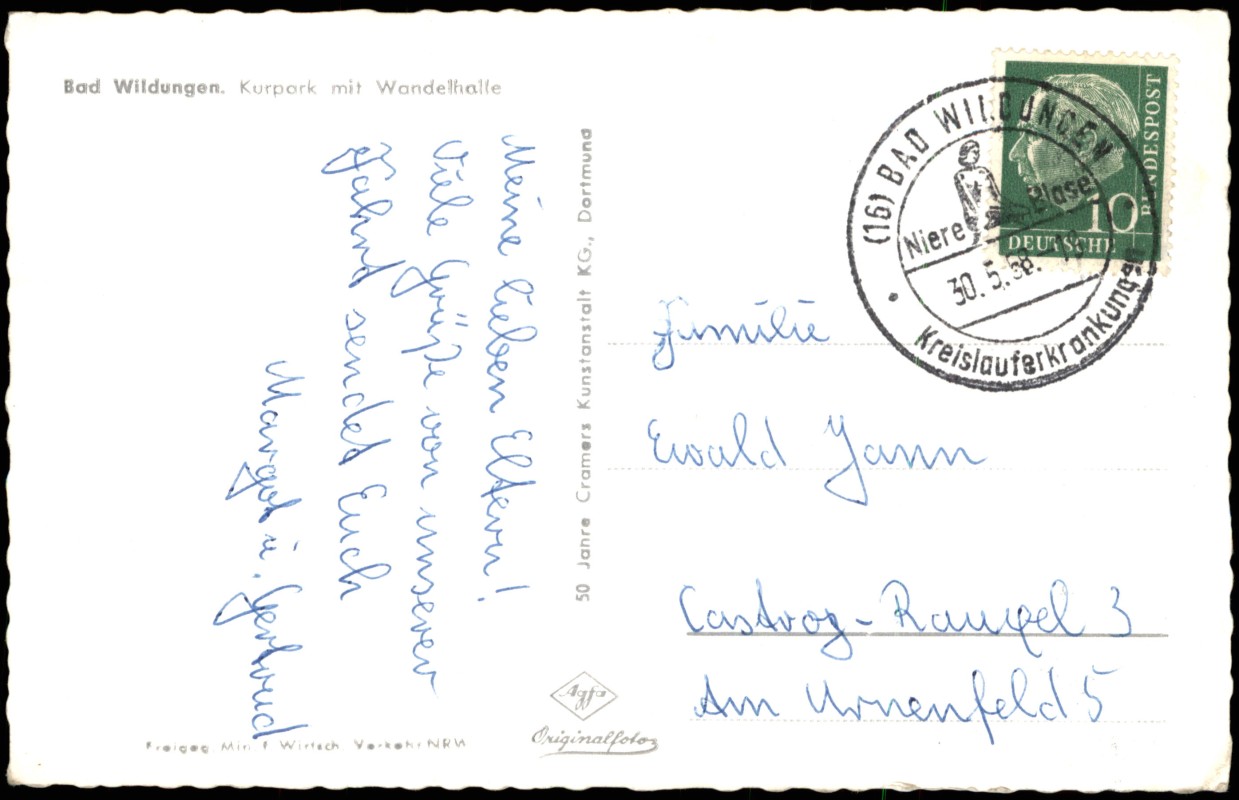 Bad Wildungen. Kurpark mit Wandelhalle
Meine lieben Eltern!
Viele Grüße von unserer
Fahrt sendet Euch
Margot u. Gertrud
50 Jahre Cramers Kunstanstalt KG., Dortmund
Freigeg. Min. f. Wirtsch. Verkehr NRW
Agfa
Originalfoto
(16) BAD WILDUNGEN
Niere Blase
30.5.58.-18
Kreislauferkrankungen
DEUTSCHE
BUNDESPOST
10
Familie
Ewald Jann
Castrop-Rauxel 3
Am Urnenfeld 5